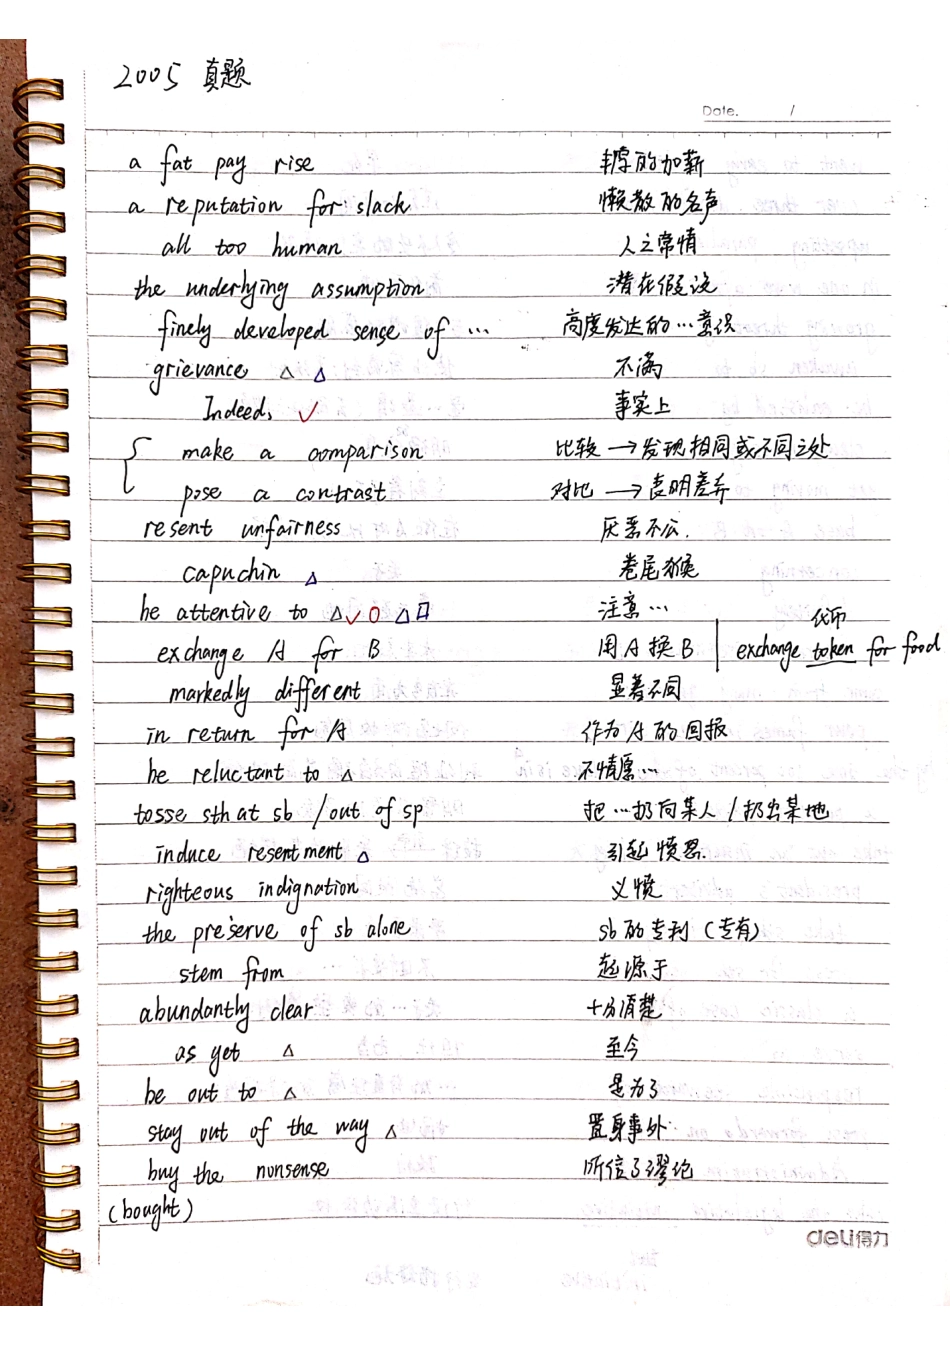 2005 真题
Date. /
a fat pay rise 丰厚的加薪
a reputation for slack 懒散的名声
all too human 人之常情
the underlying assumption 潜在假设
finely developed sense of … 高度发达的…意识
grievance △ △ 不满
Indeed, ✓ 事实上
make a comparison 比较 → 发现相同或不同之处
pose a contrast 对比 → 表明差异
resent unfairness 厌恶不公.
capuchin △ 卷尾猴
be attentive to △✓O △口 注意…
代币
exchange A for B 用A换B | exchange token for food
markedly different 显著不同
in return for A 作为A的回报
be reluctant to △ 不情愿…
tosse sth at sb / out of sp 把…扔向某人 / 扔出某地
induce resentment △ 引起愤恨.
righteous indignation 义愤
the preserve of sb alone sb的专利（专有）
stem from 起源于
abundantly clear 十分清楚
as yet △ 至今
be out to △ 是为了
stay out of the way △ 置身事外
buy the nonsense 听信了谬论
(bought)
deli得力